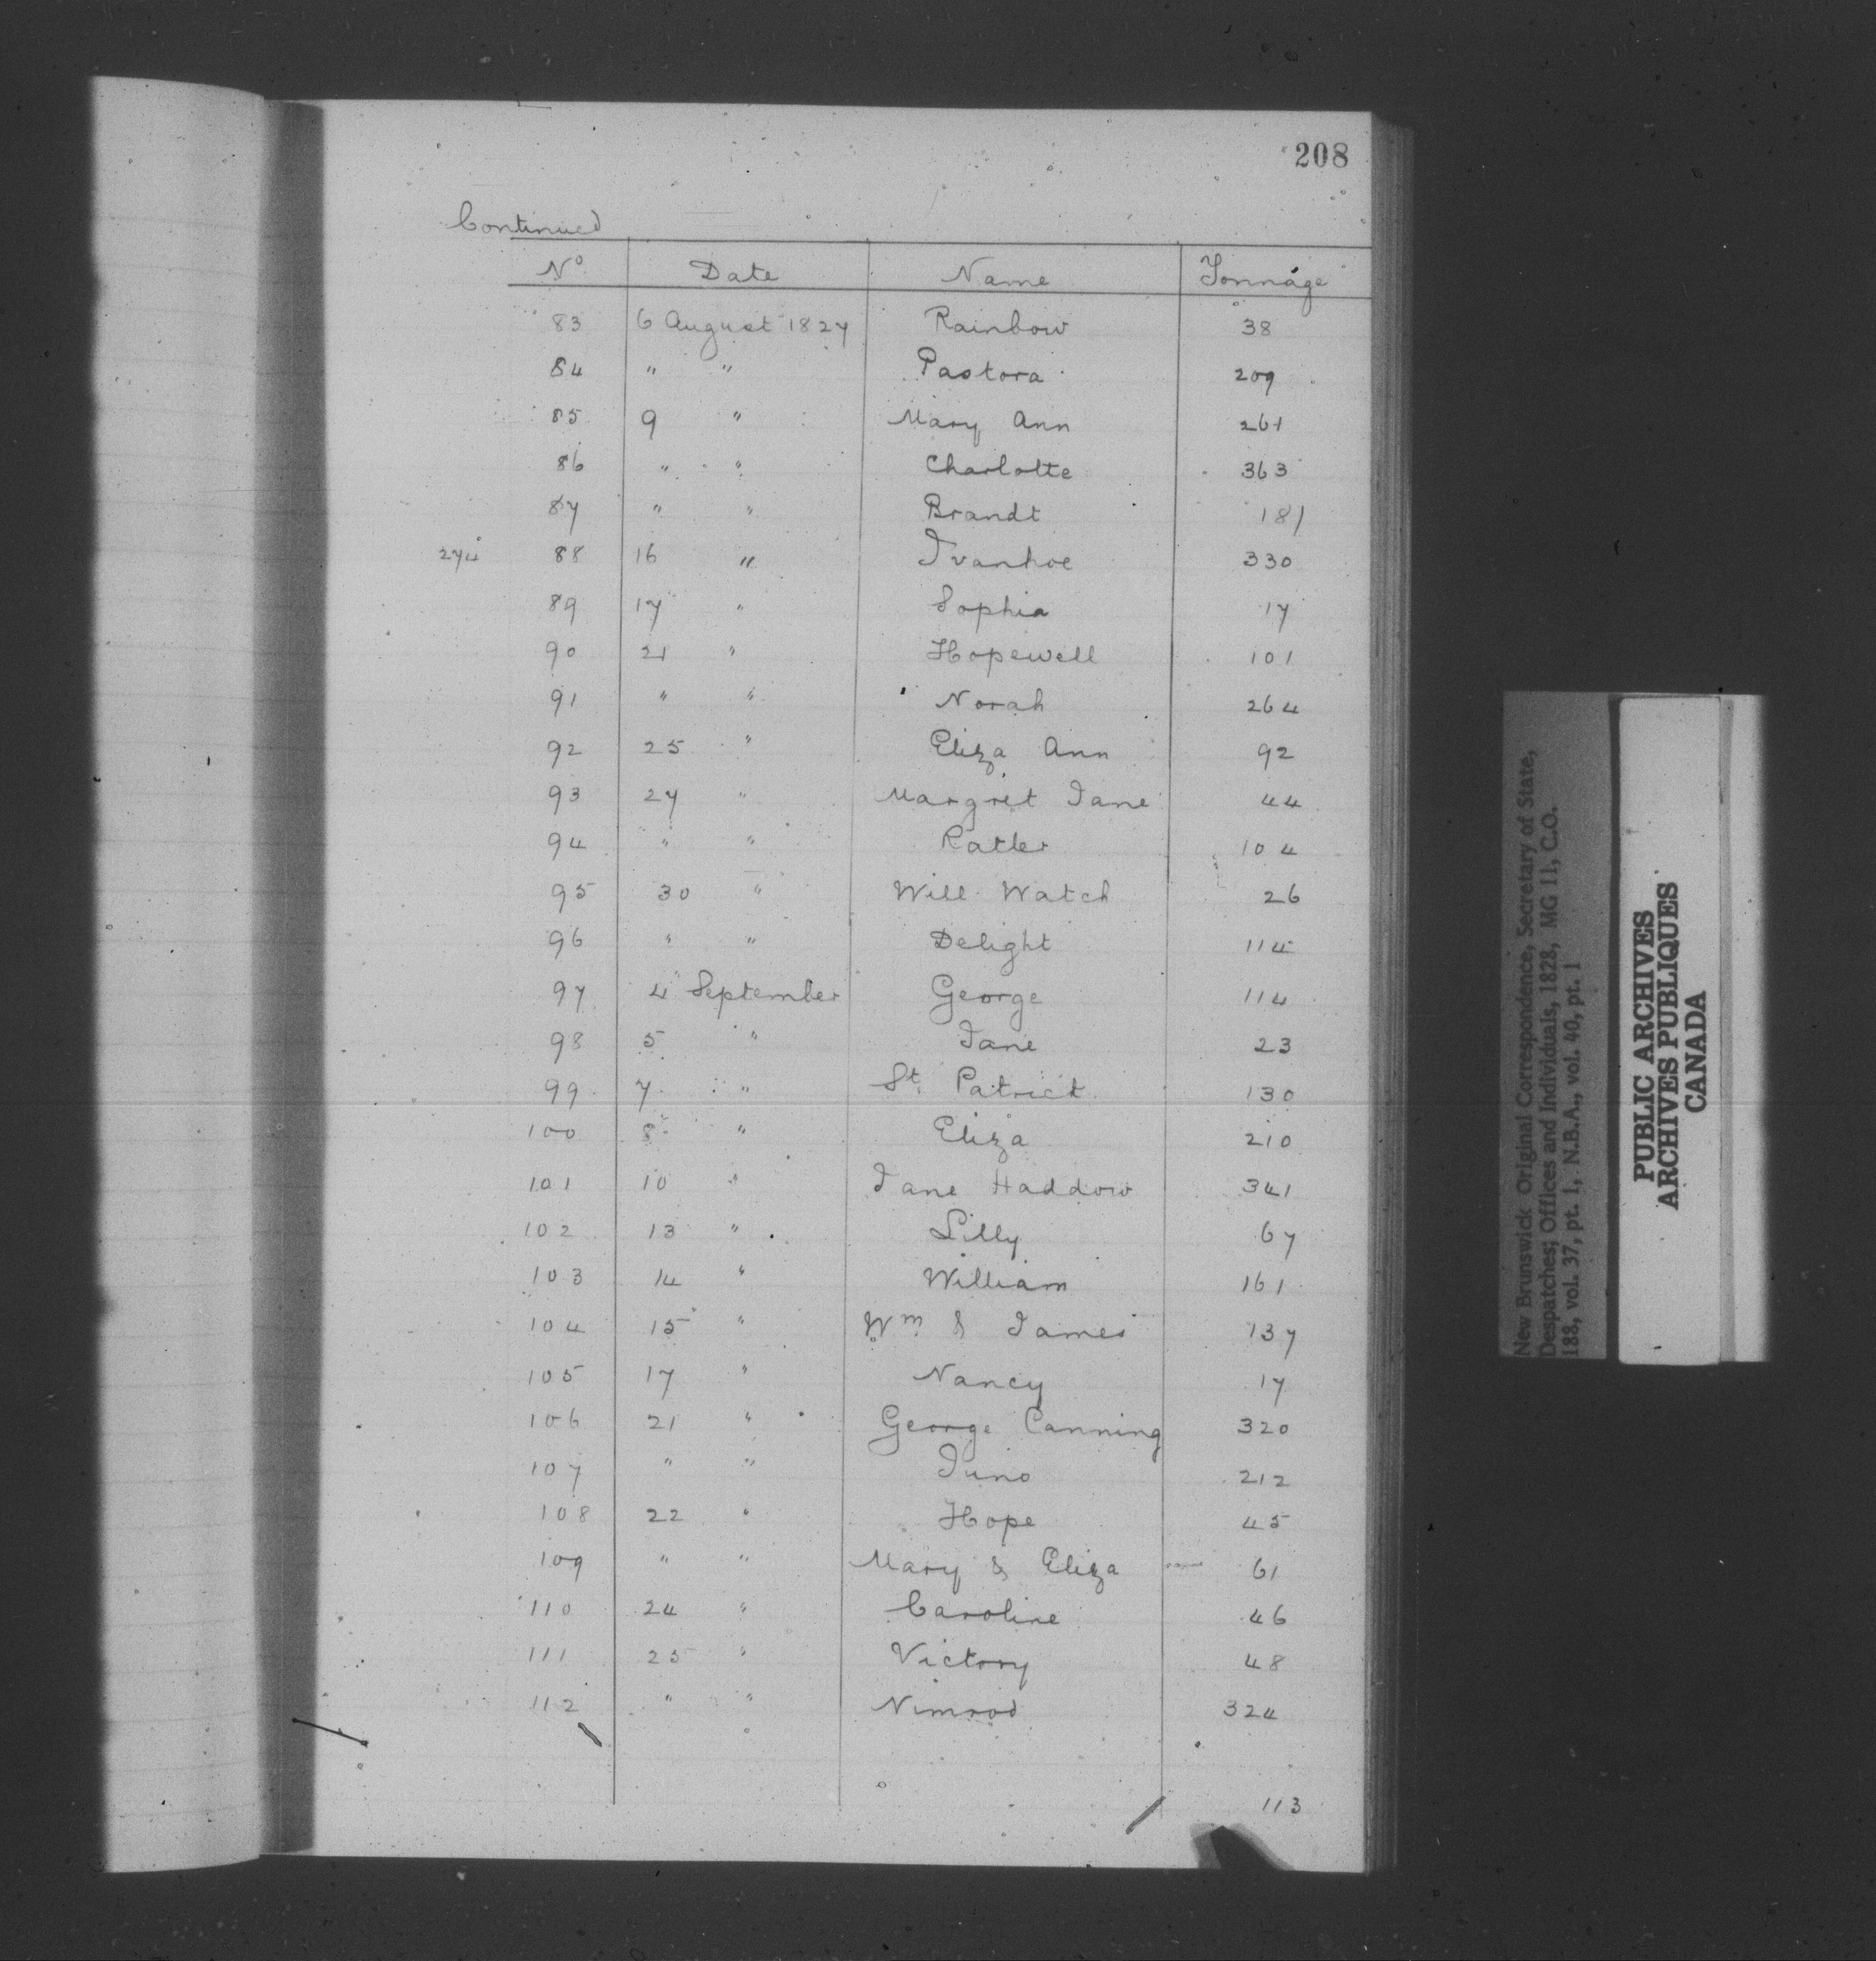 208
Continued
No Date Name Tonnage
83 6 August 1827 Rainbow 38
84 " " Pastora 209
85 9 " Mary Ann 261
86 " " Charlotte 363
87 " " Brandt 181
274 88 16 " Ivanhoe 330
89 17 " Sophia 17
90 21 " Hopewell 101
91 " " Norah 264
92 25 " Eliza Ann 92
93 27 " Margret Jane 44
94 " " Ratler 104
95 30 " Will Watch 26
96 " " Delight 114
97 4 September George 114
98 5 " Jane 23
99 7 " St. Patrick 130
100 8 " Eliza 210
101 10 " Jane Haddow 341
102 13 " Lilly 67
103 14 " William 161
104 15 " Wm & James 137
105 17 " Nancy 17
106 21 " George Canning 320
107 " " Juno 212
108 22 " Hope 45
109 " " Mary & Eliza 61
110 24 " Caroline 46
111 25 " Victory 48
112 " " Nimrod 324
113
New Brunswick Original Correspondence, Secretary of State,
Despatches; Offices and Individuals, 1828, MG 11, C.O.
188, vol. 37, pt. 1, N.B.A., vol. 40, pt. 1
PUBLIC ARCHIVES
ARCHIVES PUBLIQUES
CANADA